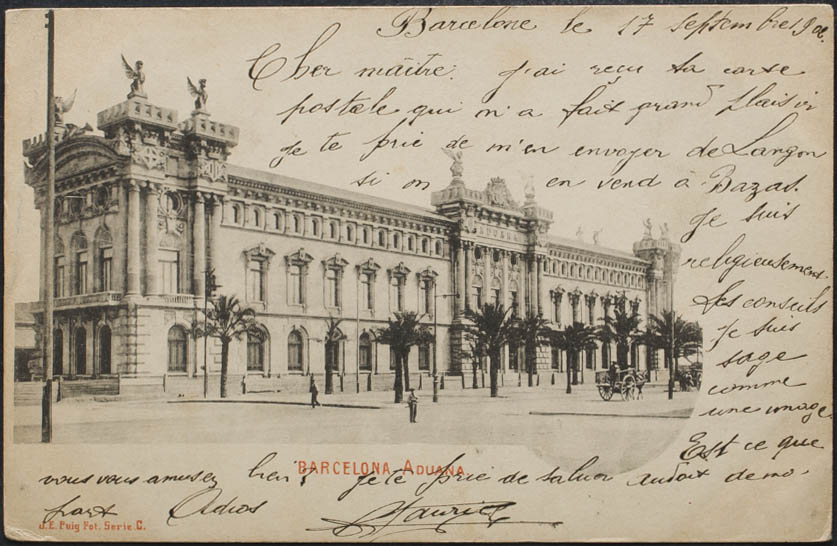 Barcelone le 17 septembre 190
Cher maître. j'ai reçu ta carte
postale qui m'a fait grand plaisir
je te prie de m'en envoyer de Langon
si on en vend à Bazas.
ADUANA
Je suis
religieusement
les conseils
je suis
sage
comme
une image.
Est ce que
vous vous amusez bien? je te prie de saluer de ma
part Adios Maurice
BARCELONA - ADUANA.
J.E. Puig Fot. Serie C.